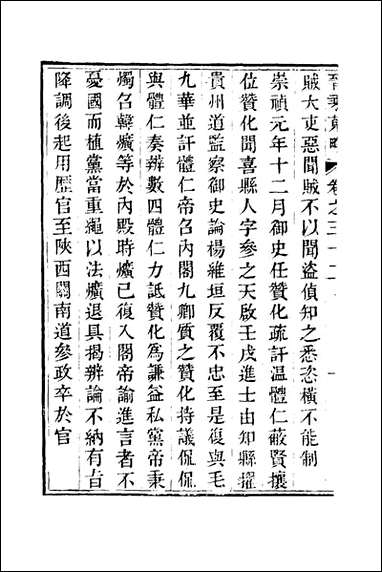 晉乘蒐略　卷之三十二
賊大吏惡聞賊不以聞盜偵知之悉恣橫不能制
崇禎元年十二月御史任贊化疏訐温體仁蔽賢攘
位贊化聞喜縣人字參之天啟壬戌進士由知縣擢
貴州道監察御史論楊維垣反覆不忠至是復與毛
九華並訐體仁帝召內閣九卿質之贊化持議侃侃
與體仁奏辨數四體仁力詆贊化為謙益私黨帝秉
燭召韓爌等於內殿時爌已復入閣帝諭進言者不
憂國而植黨當重繩以法爌退具揭辨論不納有旨
降調後起用歷官至陝西關南道參政卒於官